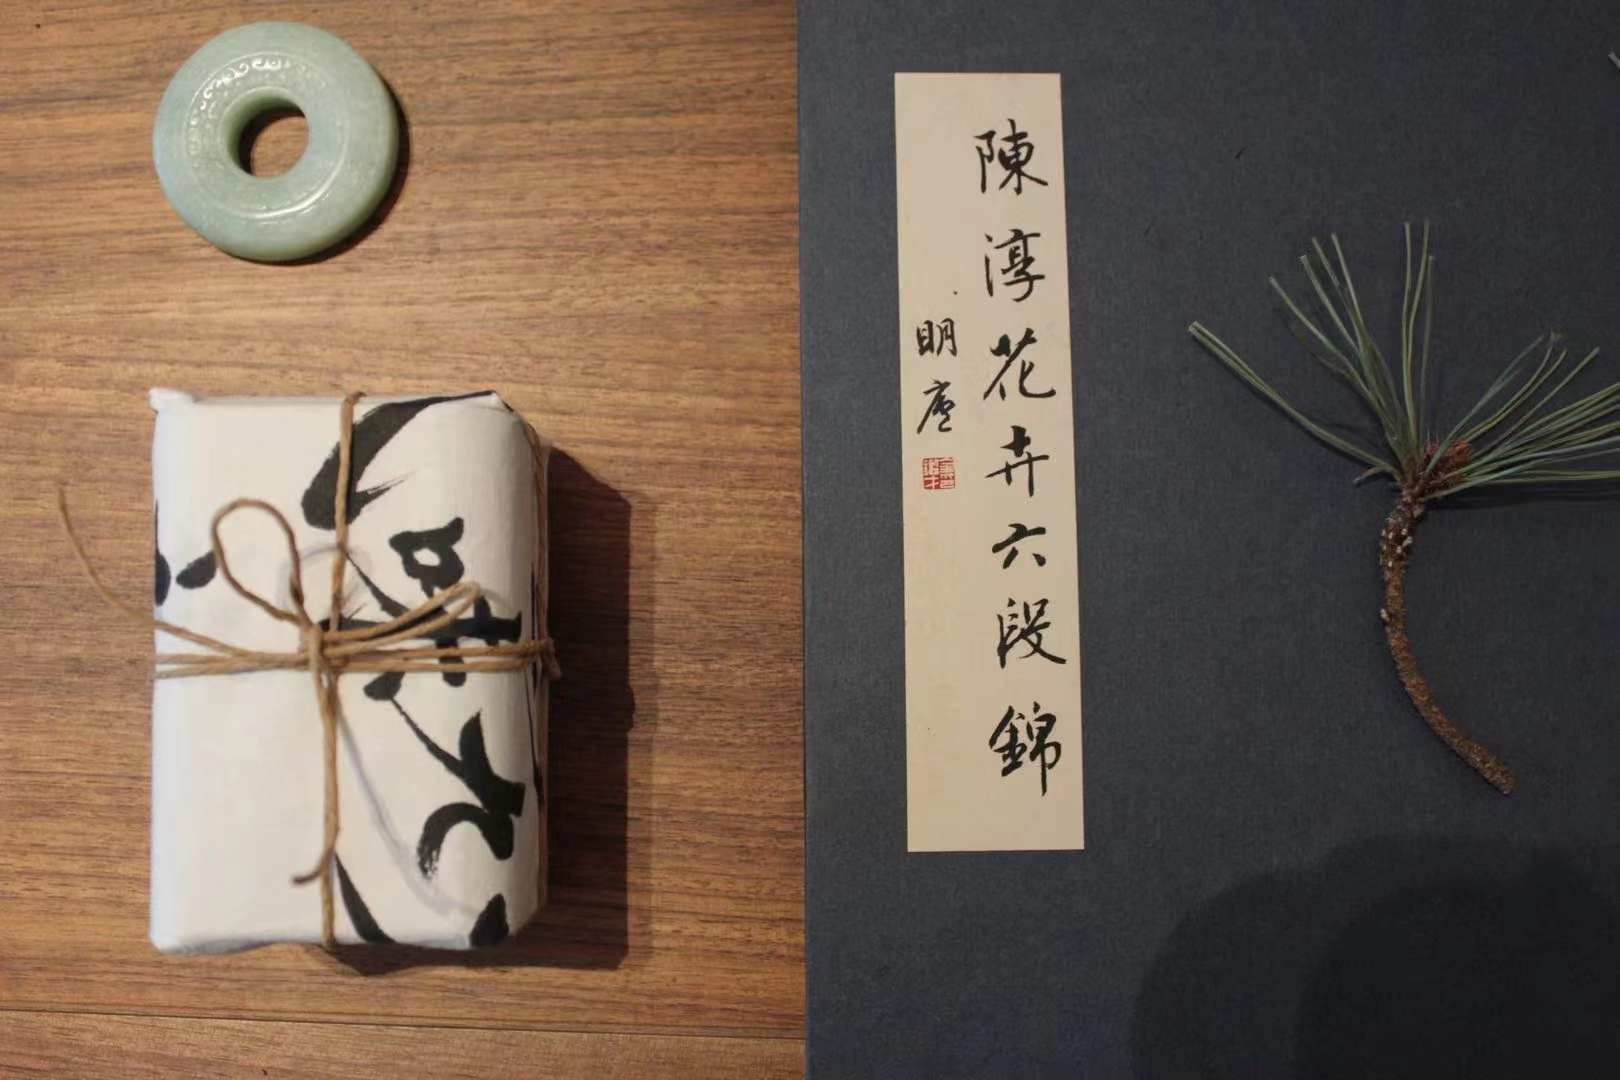 陳淳花卉六段錦
明廬